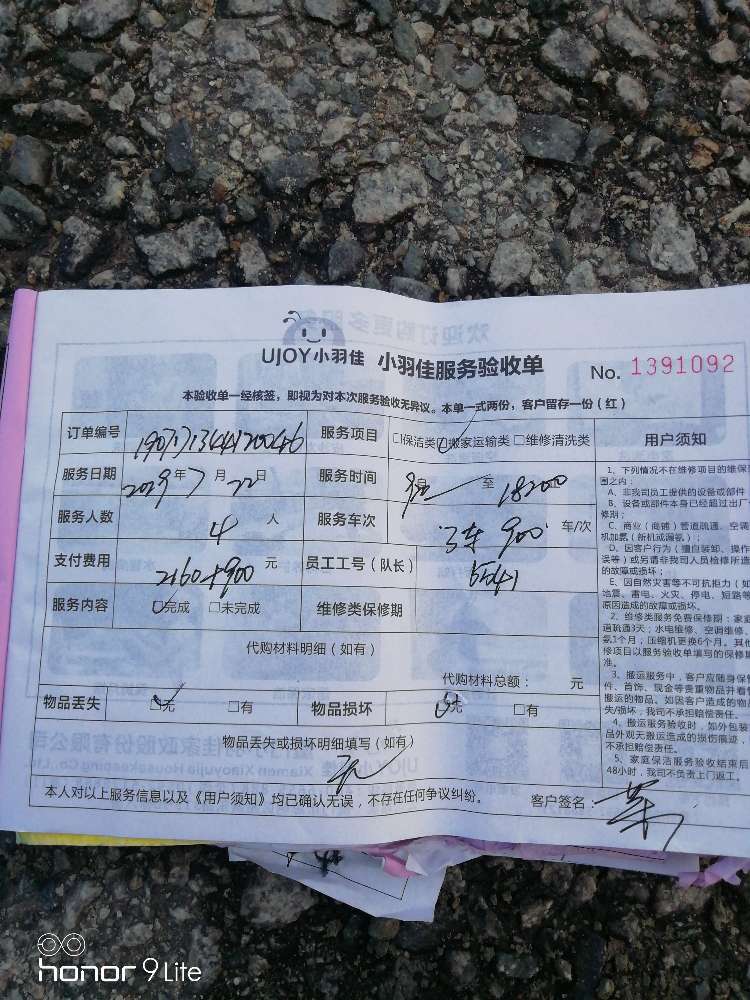 UJOY小羽佳 小羽佳服务验收单 No. 1391092
本验收单一经核签，即视为对本次服务验收无异议。本单一式两份，客户留存一份（红）
订单编号 服务项目 □保洁类 ☑搬家运输类 □维修清洗类
服务日期 2019年7月22日 服务时间 至
服务人数 4 人 服务车次 3车 900 车/次
支付费用 2160+900 元 员工工号（队长） 5541
服务内容 ☑完成 □未完成 维修类保修期
代购材料明细（如有）
代购材料总额： 元
物品丢失 ☑无 □有 物品损坏 ☑无 □有
物品丢失或损坏明细填写（如有）
无
本人对以上服务信息以及《用户须知》均已确认无误，不存在任何争议纠纷。 客户签名：
用户须知
1、下列情况不在维修项目的维保
围之内：
A、非我司员工提供的设备或部件
B、设备或部件本身已经超过出厂
修期；
C、商业（商铺）管道疏通、空调
机加氨（新机或漏氨）；
D、因客户行为（擅自装卸、操作
误等）或另请非我司人员检修所造
的故障或损坏；
E、因自然灾害等不可抗力（如
地震、雷电、火灾、停电、短路等
原因造成的故障或损坏。
2、维修类服务免费保修期：家庭
道疏通3天；水电维修、空调维修、
氨1个月；压缩机更换6个月。其他
修项目以服务验收单填写的保修期
准。
3、搬运服务中，客户应随身保管
件、首饰、现金等贵重物品并看
搬运的物品。如因客户造成的物品
失/损坏，我司不承担赔偿责任。
4、搬运服务验收时，如外包装
品外观无搬运造成的损伤痕迹，
不承担赔偿责任。
5、家庭保洁服务验收结束后
48小时，我司不负责上门返工。
honor 9 Lite